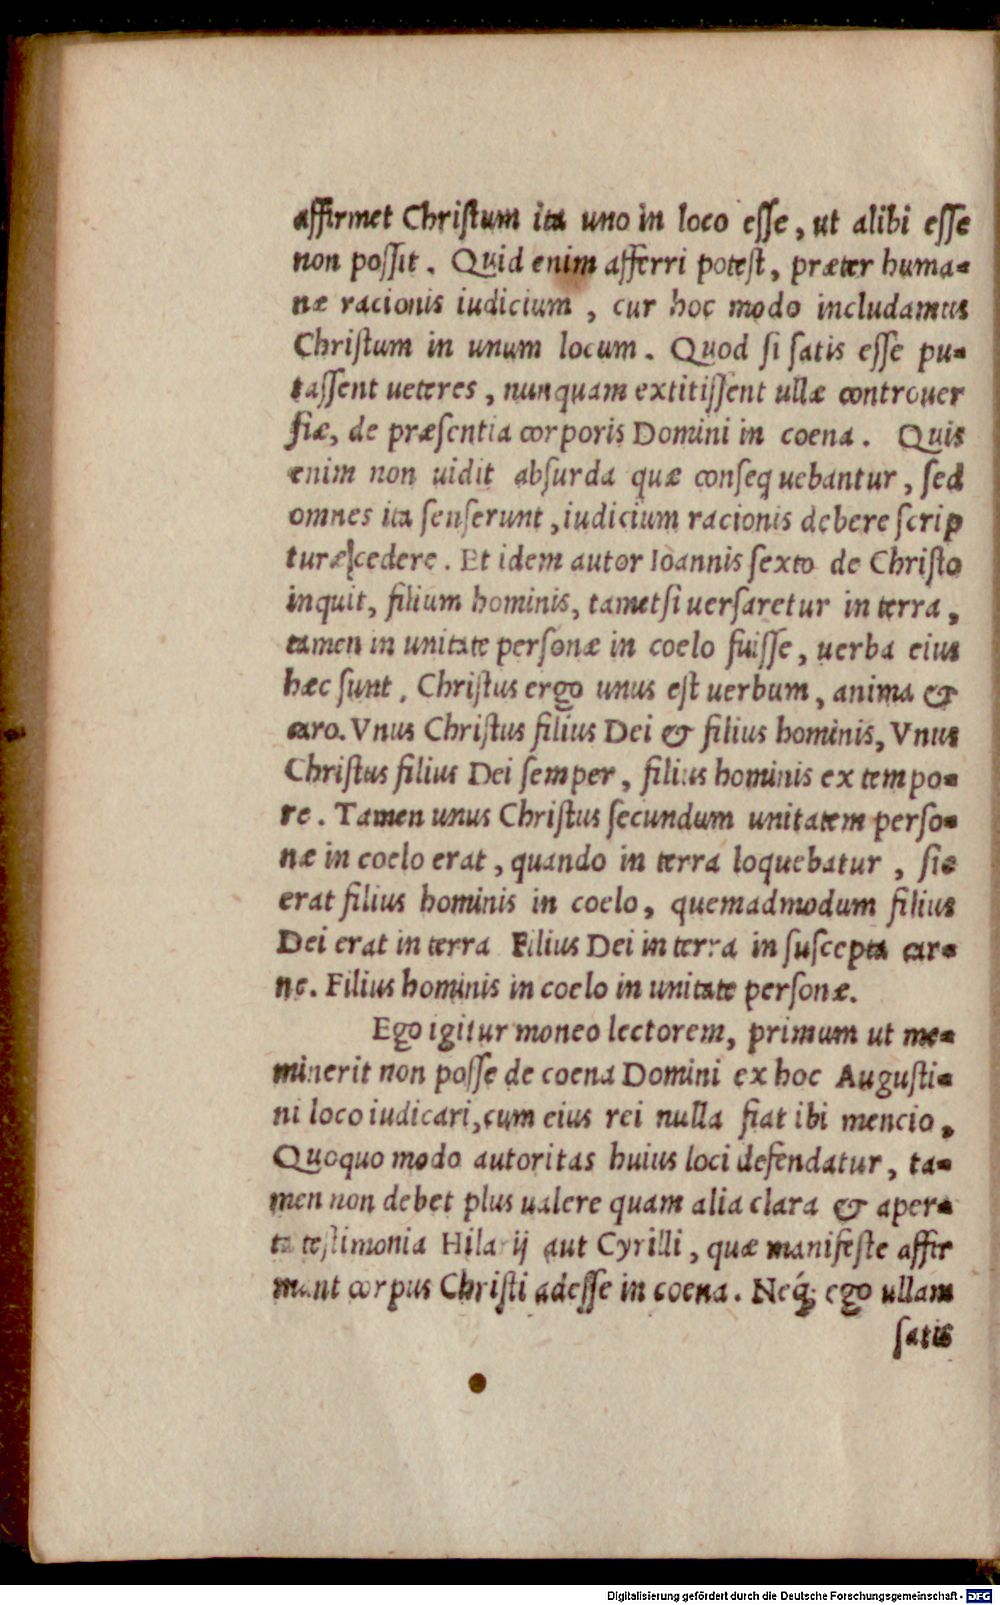 affirmet Chriſtum ita uno in loco eſſe, ut alibi eſſe
non poſſit. Quid enim afferri poteſt, præter huma-
næ racionis iudicium, cur hoc modo includamus
Chriſtum in unum locum. Quod ſi ſatis eſſe pu-
taſſent ueteres, nunquam extitiſſent ullæ controuer
ſiæ, de præſentia corporis Domini in coena. Quis
enim non uidit abſurda quæ conſequebantur, ſed
omnes ita ſenſerunt, iudicium racionis debere ſcrip
turæ cedere. Et idem autor Ioannis ſexto de Chriſto
inquit, filium hominis, tametſi uerſaretur in terra,
tamen in unitate perſonæ in coelo fuiſſe, uerba eius
hæc ſunt, Chriſtus ergo unus eſt uerbum, anima &
caro. Vnus Chriſtus filius Dei & filius hominis, Vnus
Chriſtus filius Dei ſemper, filius hominis ex tempo-
re. Tamen unus Chriſtus ſecundum unitatem perſo-
næ in coelo erat, quando in terra loquebatur, ſic
erat filius hominis in coelo, quemadmodum filius
Dei erat in terra Filius Dei in terra in ſuſcepta car-
ne. Filius hominis in coelo in unitate perſonæ.
Ego igitur moneo lectorem, primum ut me-
minerit non poſſe de coena Domini ex hoc Auguſti-
ni loco iudicari, cum eius rei nulla fiat ibi mencio,
Quoquo modo autoritas huius loci defendatur, ta-
men non debet plus ualere quam alia clara & aper-
ta teſtimonia Hilarij aut Cyrilli, quæ manifeſte affir
mant corpus Chriſti adeſſe in coena. Neq́; ego ullam
ſatis
Digitalisierung gefördert durch die Deutsche Forschungsgemeinschaft - DFG